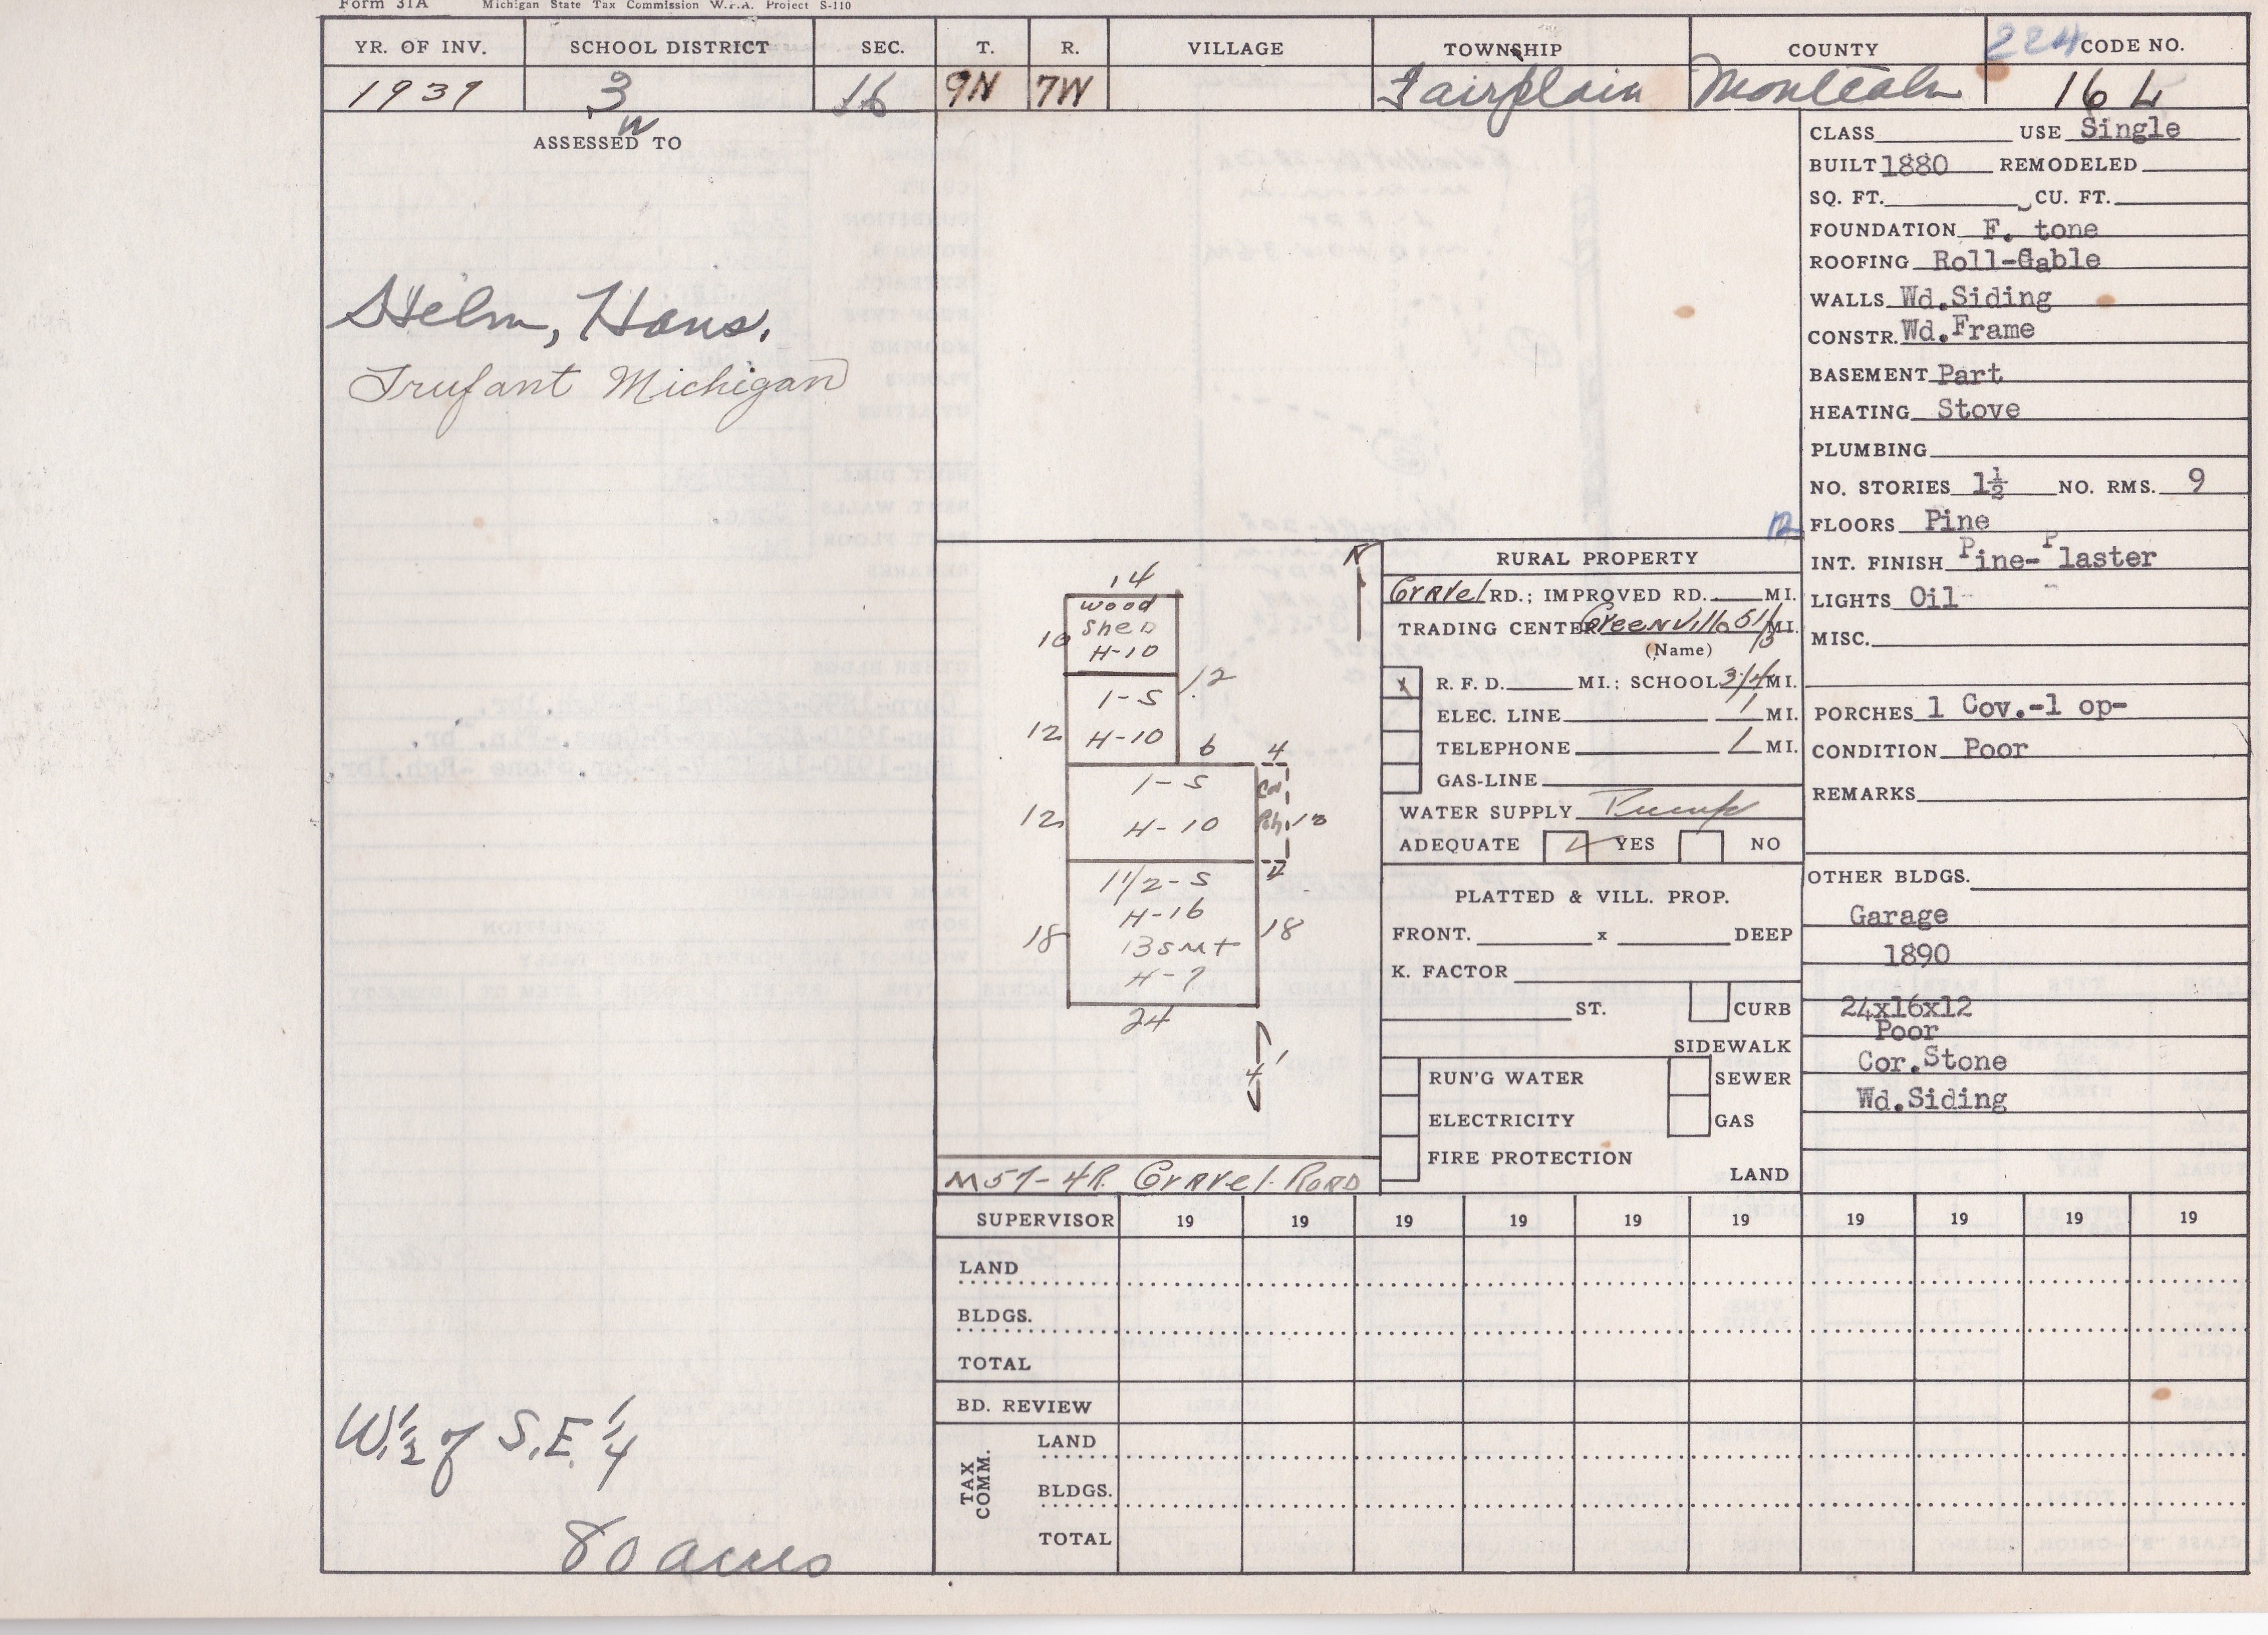 Form 31A Michigan State Tax Commission W.P.A. Project S-110
YR. OF INV. SCHOOL DISTRICT SEC. T. R. VILLAGE TOWNSHIP COUNTY 224 CODE NO.
1939 3 16 9N 7W Fairplain Montcalm 16 L
W
ASSESSED TO
Stelm, Hans.
Trufant Michigan
W. 1/2 of S.E. 1/4
80 acres
14
Wood
Shed
H-10
10
12
1-S
H-10
12
6
4
1-S
H-10
12
Cov
Pch
18
1 1/2-S
H-16
Bsmt
H-7
18
24
4'
M57-4R. Gravel Road
N
RURAL PROPERTY
Gravel RD.; IMPROVED RD. MI.
TRADING CENTER Greenville 5 1/2 MI.
(Name)
X R. F. D. MI.; SCHOOL 3/4 MI.
ELEC. LINE 1 MI.
TELEPHONE 1 MI.
GAS-LINE
WATER SUPPLY Pump
ADEQUATE YES NO
PLATTED & VILL. PROP.
FRONT. x DEEP
K. FACTOR
ST. CURB
SIDEWALK
RUN'G WATER SEWER
ELECTRICITY GAS
FIRE PROTECTION
LAND
CLASS USE Single
BUILT 1880 REMODELED
SQ. FT. CU. FT.
FOUNDATION F. tone
ROOFING Roll-Gable
WALLS Wd.Siding
CONSTR. Wd.Frame
BASEMENT Part
HEATING Stove
PLUMBING
NO. STORIES 1½ NO. RMS. 9
FLOORS Pine
INT. FINISH Pine-Plaster
LIGHTS Oil
MISC.
PORCHES 1 Cov.-1 op-
CONDITION Poor
REMARKS
OTHER BLDGS.
Garage
1890
24x16x12
Poor
Cor.Stone
Wd.Siding
SUPERVISOR 19 19 19 19 19 19 19 19 19 19
LAND
BLDGS.
TOTAL
BD. REVIEW
TAX COMM.
LAND
BLDGS.
TOTAL